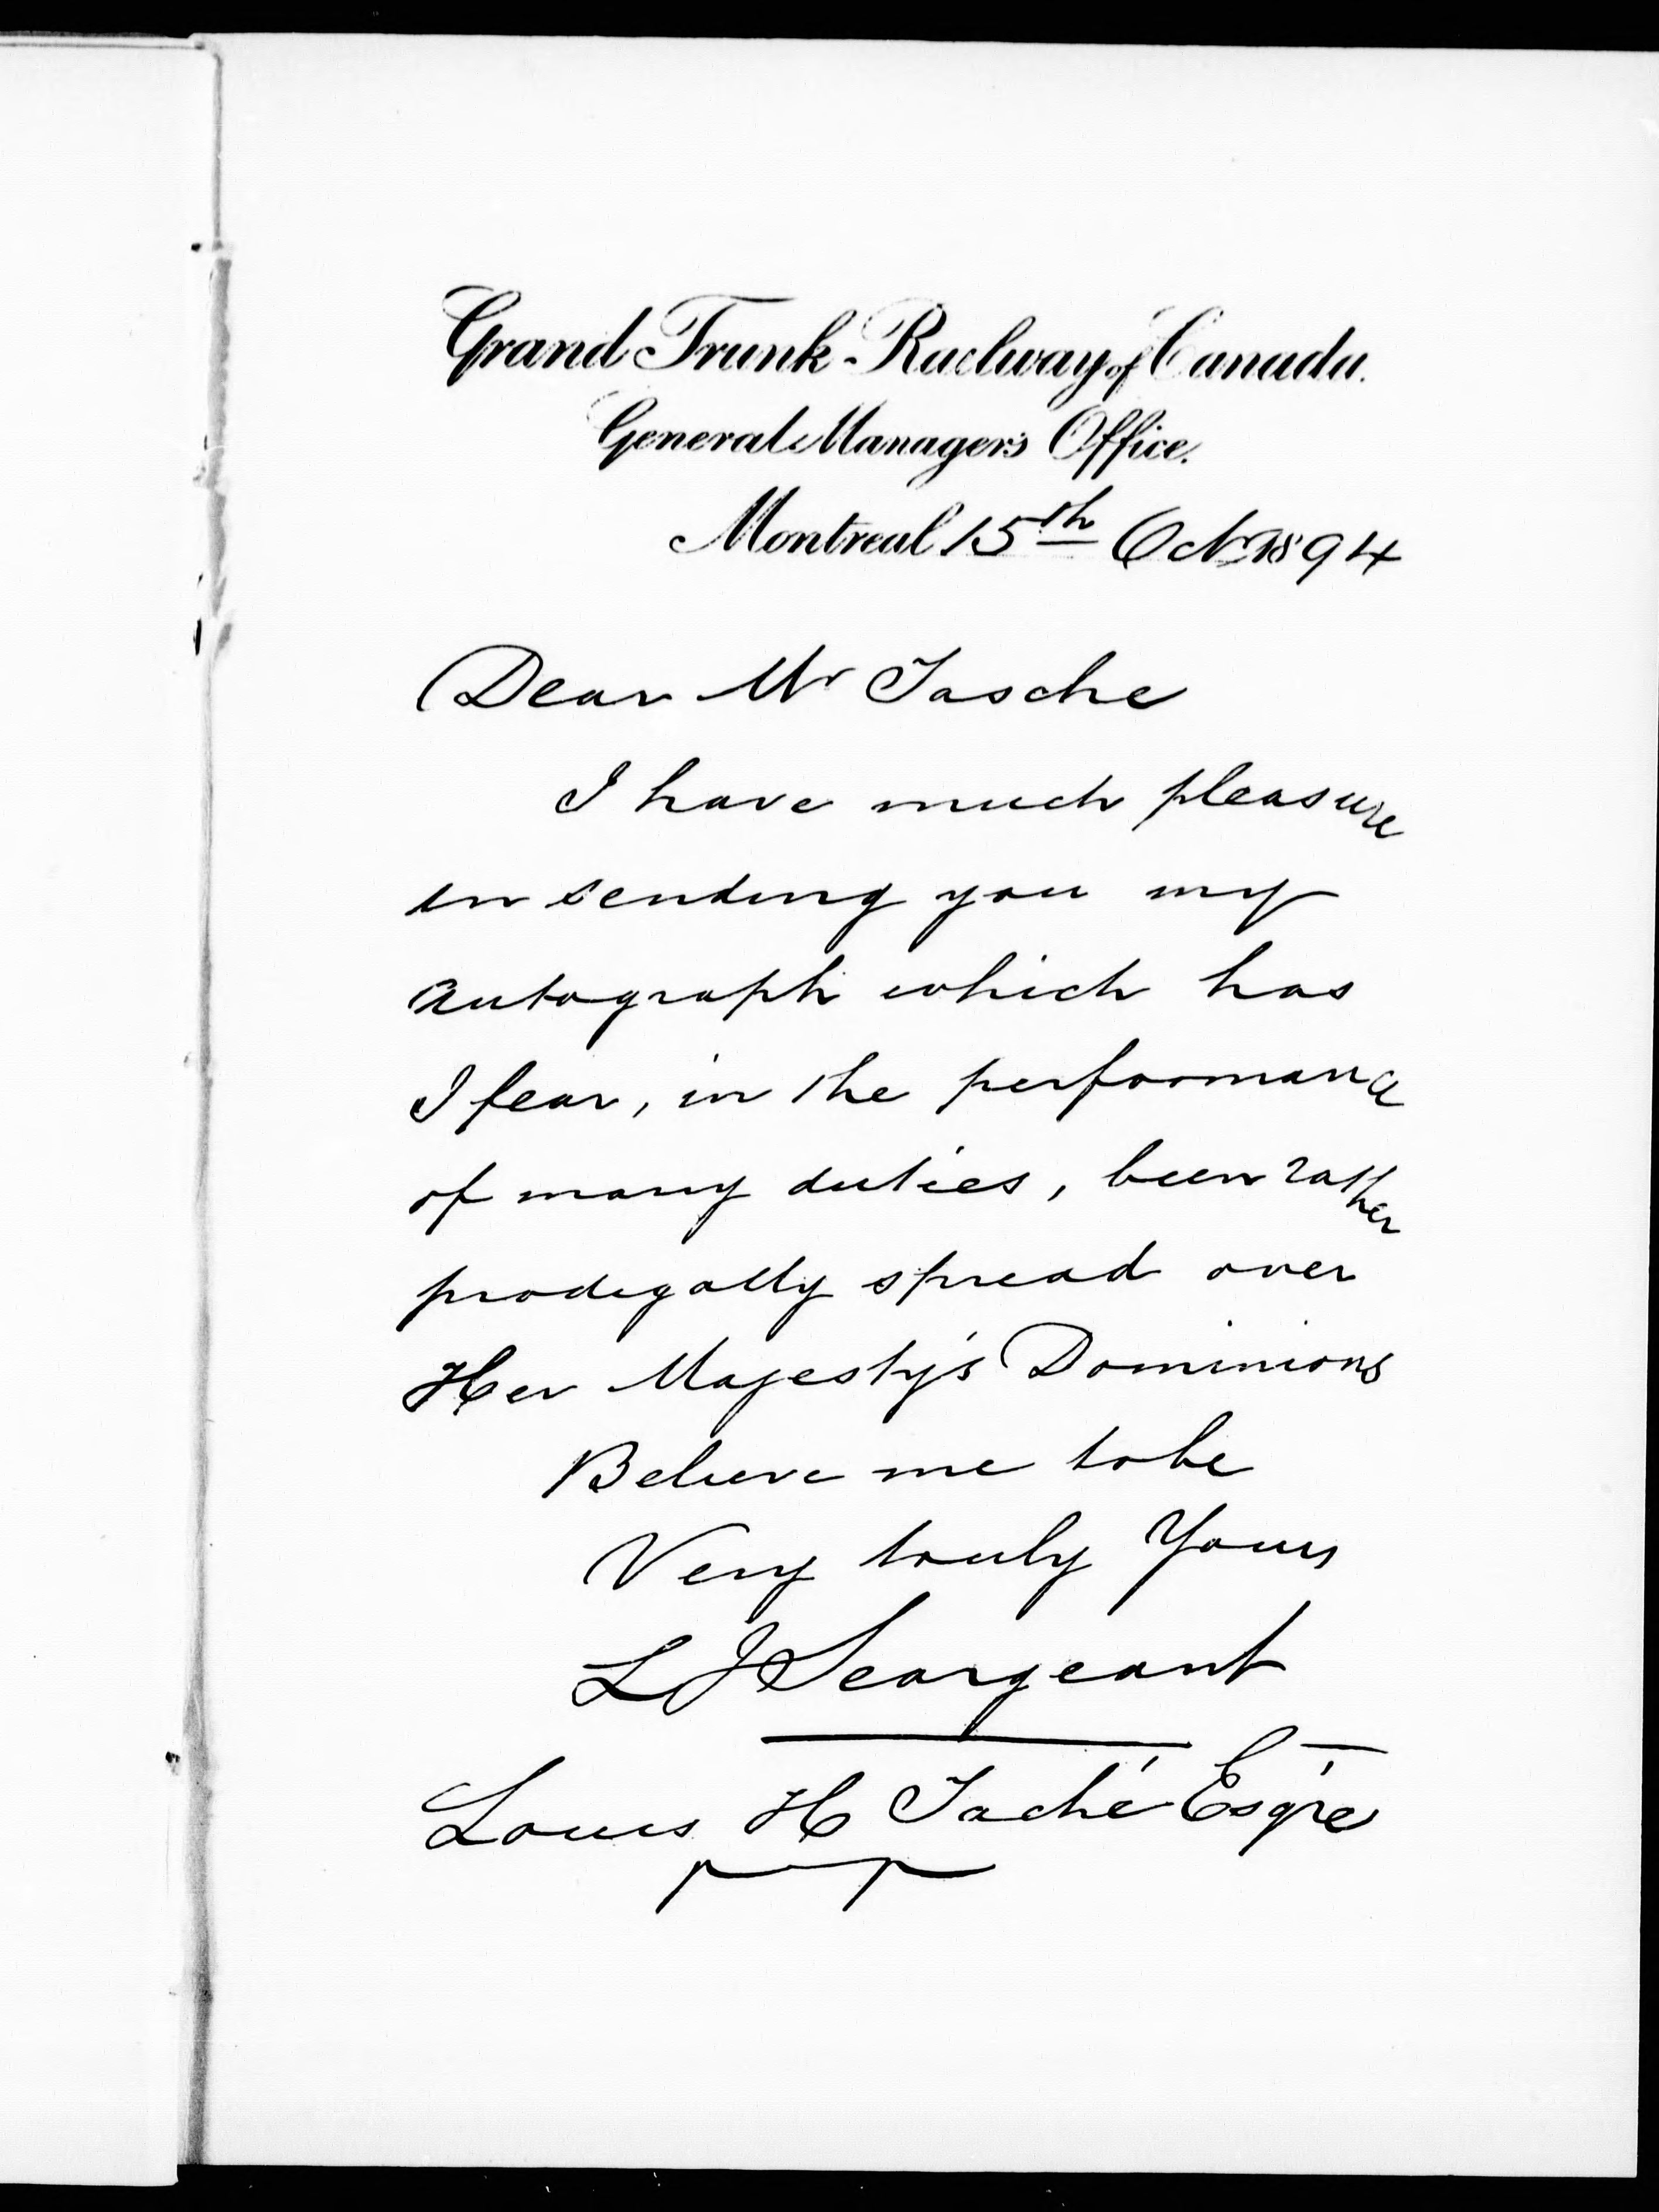 Grand Trunk Railway of Canada.
General Manager's Office.
Montreal 15th Octr 1894
Dear Mr Tasche
I have much pleasure
in sending you my
autograph which has
I fear, in the performance
of many duties, been rather
prodigally spread over
Her Majesty's Dominions
Believe me to be
Very truly Yours
L J Seargeant
Louis H Taché Esqre